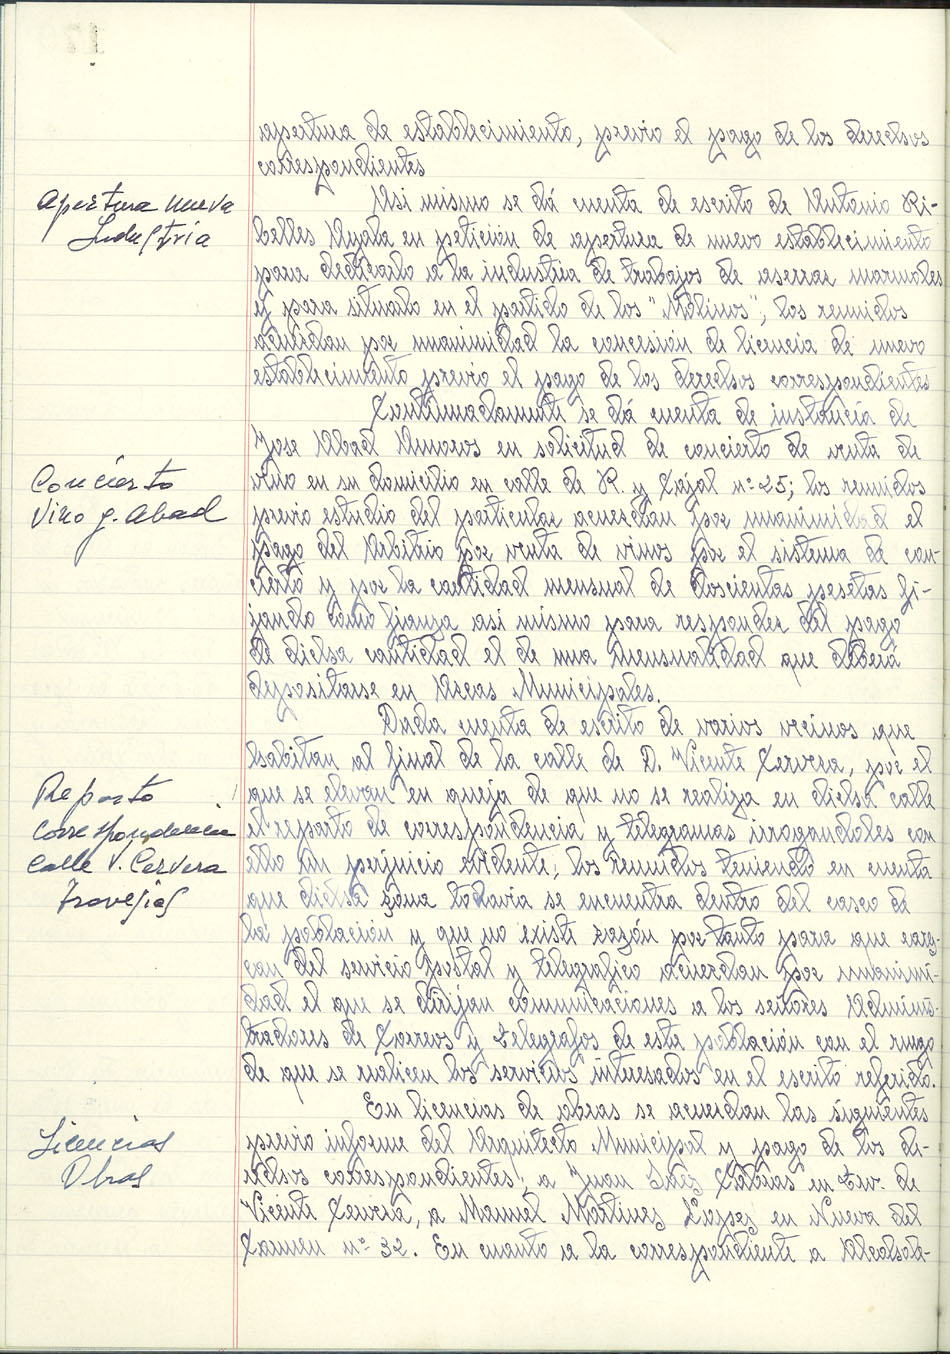 apertura de establecimiento, previo el pago de los derechos
correspondientes
Apertura nueva
Industria
Asi mismo se dá cuenta de escrito de Antonio Ri-
belles Ayala en petición de apertura de nuevo establecimiento
para dedicarlo a la industria de trabajos de aserrar marmoles
y para situado en el partido de los "Molinos"; los reunidos
acuerdan por unanimidad la concesión de licencia de nuevo
establecimiento previo el pago de los derechos correspondientes
Continuadamente se dá cuenta de instancia de
Jose Abad Amoros en solicitud de concierto de venta de
Concierto
Vino J. Abad
vino en su domicilio en calle de R. y Cajal nº 25; los reunidos
previo estudio del particular acuerdan por unanimidad el
pago del Arbitrio por venta de vinos por el sistema de con-
cierto y por la cantidad mensual de Doscientas pesetas fi-
jando como fianza asi mismo para responder del pago
de dicha cantidad el de una mensualidad que deberá
depositarse en Arcas Municipales.
Dada cuenta de escrito de varios vecinos que
habitan al final de la calle de D. Vicente Cervera, por el
Reparto
correspondencia
calle V. Cervera
Travesias
que se elevan en queja de que no se realiza en dicha calle
el reparto de correspondencia y telegramas irrogandoles con
ello un perjuicio evidente; los reunidos teniendo en cuenta
que dicha zona todavia se encuentra dentro del casco de
la población y que no existe razón por tanto para que carez-
can del servicio postal y telegrafico acuerdan por unanimi-
dad el que se dirijan comunicaciones a los señores Adminis-
tradores de Correos y Telegrafos de esta población con el ruego
de que se realicen los servicios interesados en el escrito referido.
Licencias
Obras
En licencias de obras se acuerdan las siguientes
previo informe del Arquitecto Municipal y pago de los de-
rechos correspondientes; a Juan Cabras en Trv. de
Vicente Cervera, a Manuel Martinez Lopez en Nueva del
Carmen nº 32. En cuanto a la correspondiente a